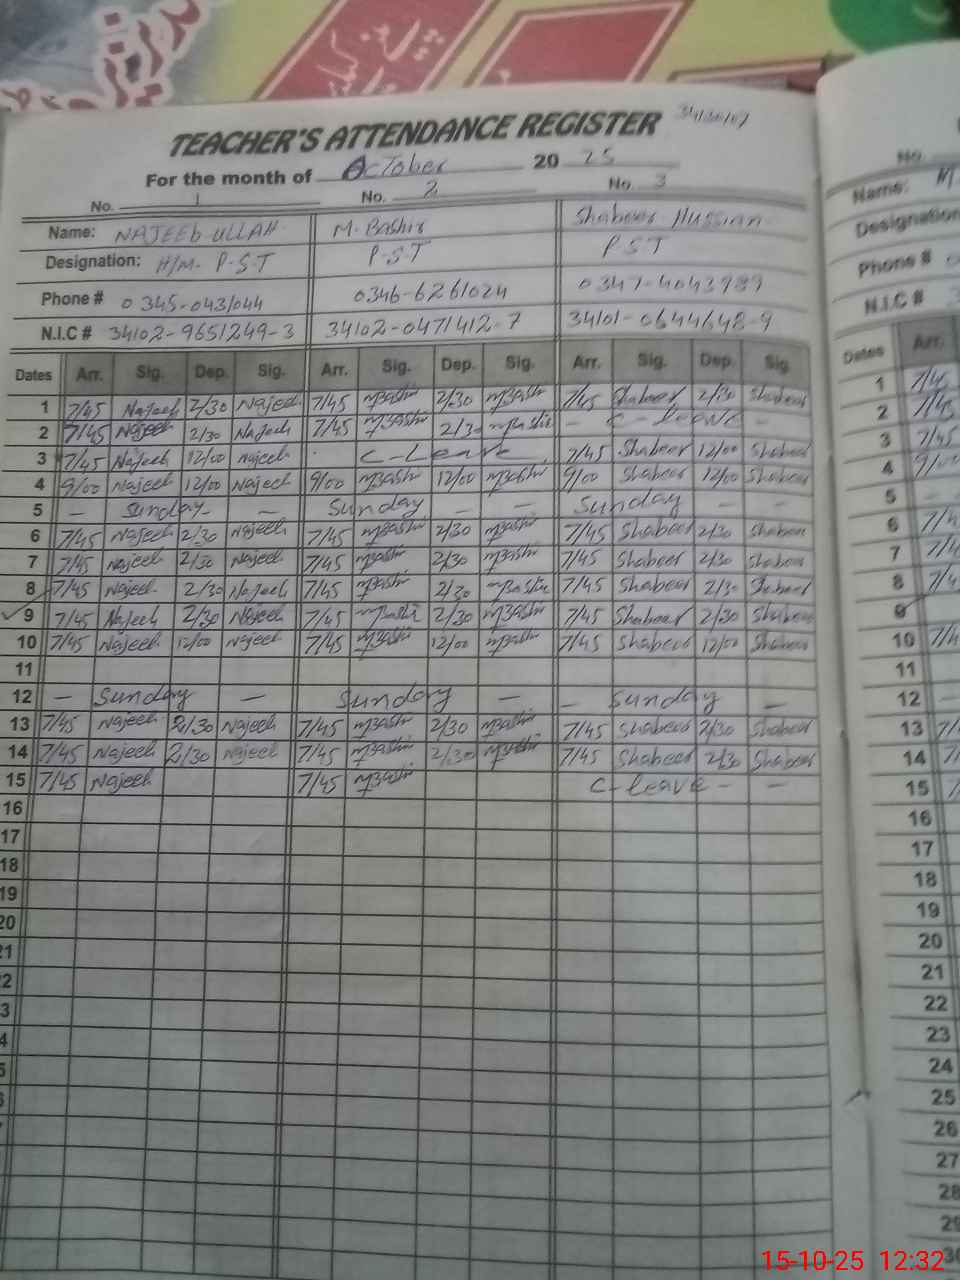 TEACHER'S ATTENDANCE REGISTER
For the month of October 2025
No. 1 No. 2 No. 3
Name: NAJEEB ULLAH M. Bashir Shabeer Hussian
Designation: H/M. P.S.T P.S.T P.S.T
Phone # 0345-0431044 0346-6261024 0347-4043989
N.I.C # 34102-9651249-3 34102-0471412-7 34101-0644648-9
Dates Arr. Sig. Dep. Sig. Arr. Sig. Dep. Sig. Arr. Sig. Dep. Sig
1 7/45 Najeeb 2/30 Najeeb 7/45 MBashir 2/30 MBashir 7/45 Shabeer 2/30 Shabeer
2 7/45 Najeeb 2/30 Najeeb 7/45 MBashir 2/30 MBashir - C-leave -
3 7/45 Najeeb 12/00 Najeeb C-Leave 7/45 Shabeer 12/00 Shabeer
4 9/00 Najeeb 12/00 Najeeb 9/00 MBashir 12/00 MBashir 9/00 Shabeer 12/00 Shabeer
5 - Sunday - - Sunday - - Sunday - -
6 7/45 Najeeb 2/30 Najeeb 7/45 MBashir 2/30 MBashir 7/45 Shabeer 2/30 Shabeer
7 7/45 Najeeb 2/30 Najeeb 7/45 MBashir 2/30 MBashir 7/45 Shabeer 2/30 Shabeer
8 7/45 Najeeb 2/30 Najeeb 7/45 MBashir 2/30 MBashir 7/45 Shabeer 2/30 Shabeer
9 7/45 Najeeb 2/30 Najeeb 7/45 MBashir 2/30 MBashir 7/45 Shabeer 2/30 Shabeer
10 7/45 Najeeb 12/00 Najeeb 7/45 MBashir 12/00 MBashir 7/45 Shabeer 12/00 Shabeer
11
12 - Sunday - Sunday - - Sunday -
13 7/45 Najeeb 2/30 Najeeb 7/45 MBashir 2/30 MBashir 7/45 Shabeer 2/30 Shabeer
14 7/45 Najeeb 2/30 Najeeb 7/45 MBashir 2/30 MBashir 7/45 Shabeer 2/30 Shabeer
15 7/45 Najeeb 7/45 MBashir C-leave - -
16
17
18
19
20
21
No.
Name: M.
Designation
Phone #
N.I.C #
Dates Arr.
1 7/45
2 7/45
3 7/45
4 9/00
5 - -
6 7/4
7 7/4
8 7/4
9
10 7/4
11
12 -
13 7/
14 7/
15
16
17
18
19
20
21
22
23
24
25
26
27
28
29
30
15-10-25 12:32